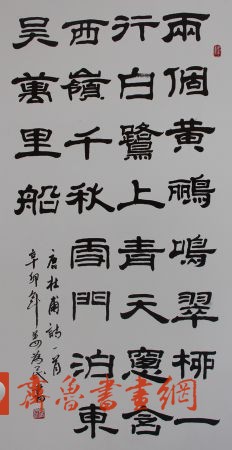 兩個黃鸝鳴翠柳一
行白鷺上青天窻含
西嶺千秋雪門泊東
吳萬里船
唐杜甫詩一首
辛卯年
齊魯書畫網